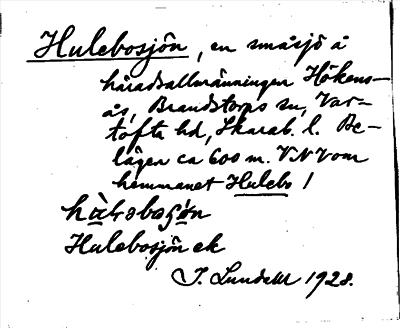 Hulebosjön, en småsjö å
häradsallmänningen Hökens-
ås, Brandstorps sn, Var-
tofta hd, Skarab. l. Be-
lägen ca 600 m. VNV om
hemmanet Hulebo 1
Hulebosjön ek
J. Lundell 1928.